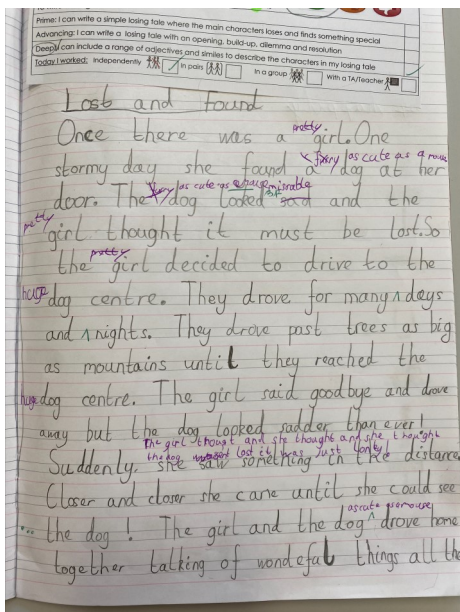 Prime: I can write a simple losing tale where the main characters loses and finds something special
Advancing: I can write a losing tale with an opening, build-up, dilemma and resolution
Deep: I can include a range of adjectives and similes to describe the characters in my losing tale
Today I worked: Independently In pairs In a group With a TA/Teacher
Lost and Found
pretty
Once there was a girl. One
furry as cute as a mouse
stormy day she found a dog at her
furry as cute as a mouse misrable
door. The dog looked sad and the
pretty
girl thought it must be lost. So
pretty
the girl decided to drive to the
huge
dog centre. They drove for many days
and nights. They drove past trees as big
as mountains until they reached the
huge
dog centre. The girl said goodbye and drove
away but the dog looked sadder than ever!
The girl thougt and she thought and she thought
the dog lost it was just lonly
Suddenly, she saw something in the distance
Closer and closer she came until she could see
as cute as mouse
... the dog! The girl and the dog drove home
together talking of wondeful things all the